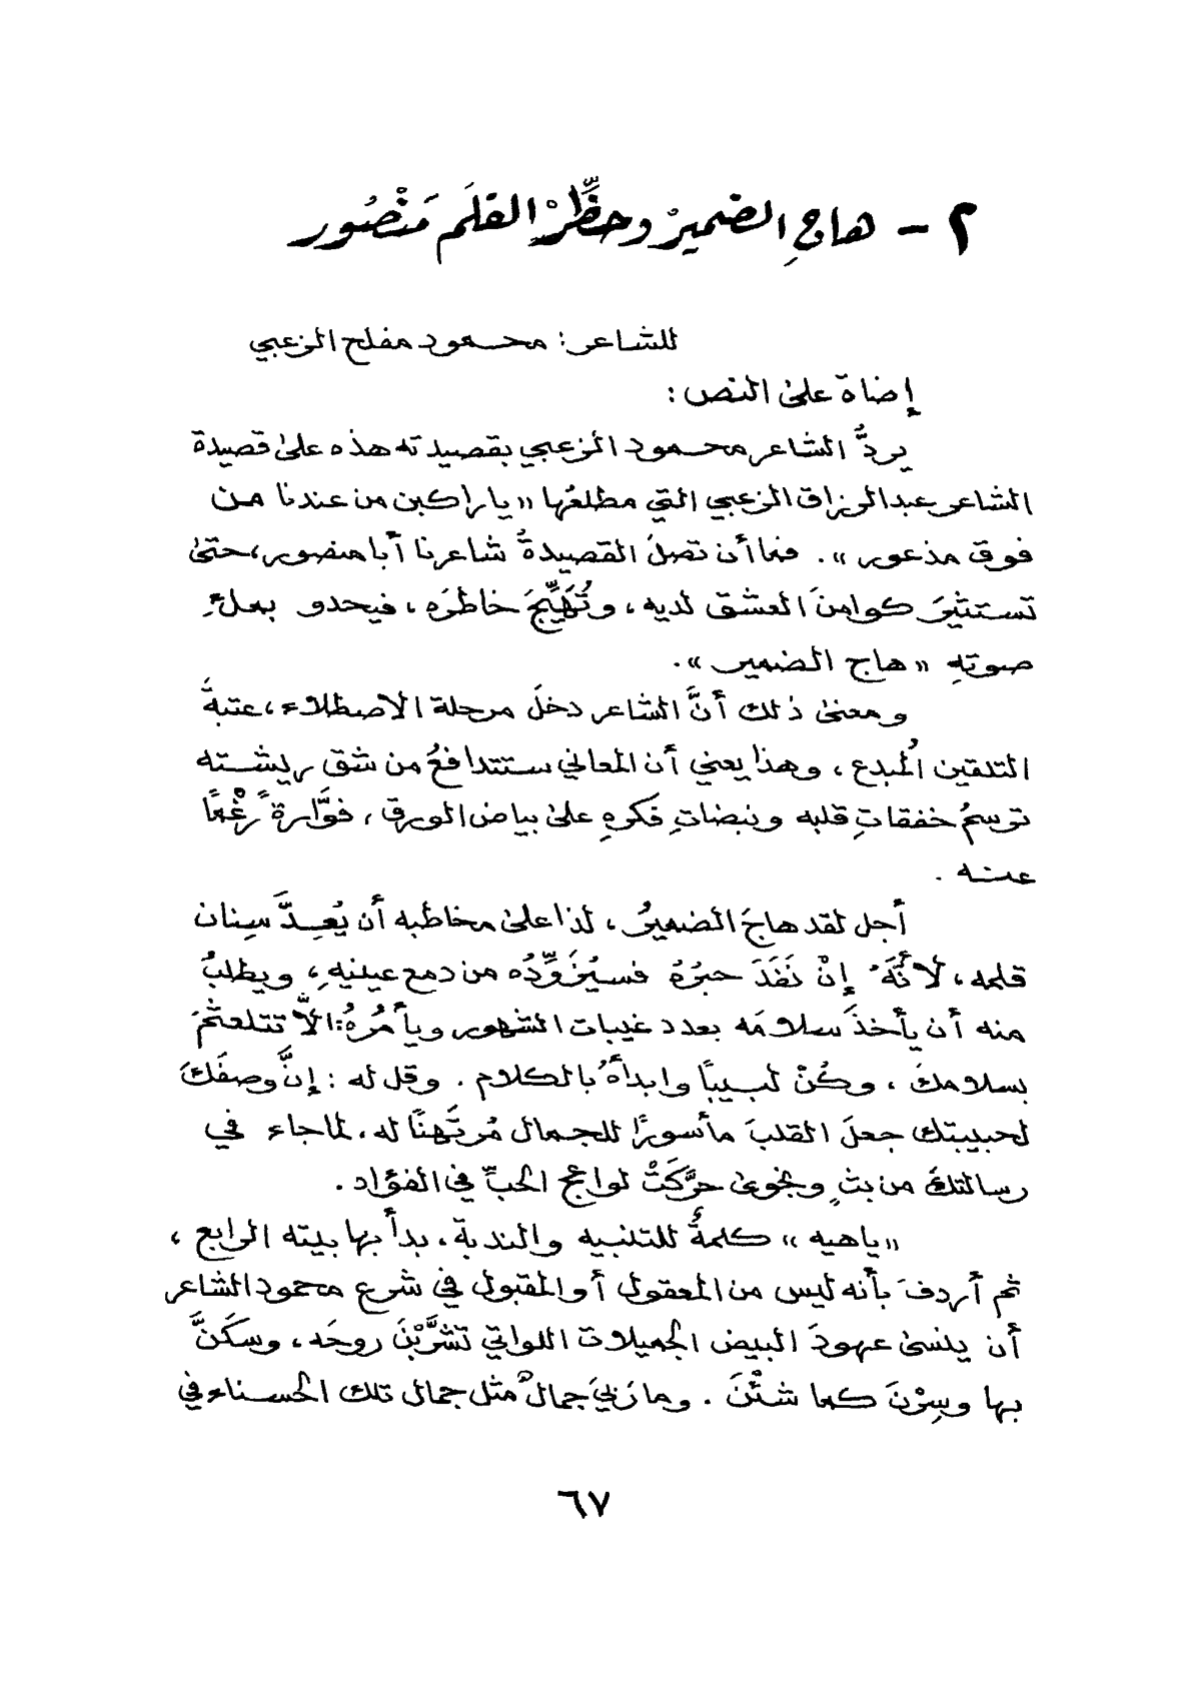 ٢ - هاجِ الضميرْ وحظِّرْ القلَم مَنْصُور
للشاعر: محمود مفلح الزعبي
إضاة على النص :
يردُّ الشاعر محمود الزعبي بقصيدته هذه على قصيدة
الشاعر عبدالرزاق الزعبي التي مطلعُها «ياراكبن من عندنا من
فوق مذعور». فما أن تصلَ القصيدةُ شاعرنا أبا منصور، حتىٰ
تستثيرَ كوامنَ العشق لديه، وتُهَيِّجَ خاطرَه، فيحدو بملءِ
صوتهِ «هاج الضمير».
ومعنىٰ ذلك أنَّ الشاعر دخلَ مرحلة الاصطلاء، عتبةَ
التلقين المُبدع، وهذا يعني أن المعاني ستتدافعُ من شق ريشته
ترسِمُ خفقاتِ قلبه ونبضاتِ فكرهِ على بياض الورق، فوَّارةً رغْمًا
عنه .
أجل لقد هاجَ الضميرُ، لذا على مخاطبه أن يُعِدَّ سِنان
قلمه، لأنَّهُ إنْ نَفَدَ حبرُهُ فسيُزَوِّدُه من دمع عينيهِ، ويطلبُ
منه أن يأخذَ سلامَه بعدد غيبات الشهور ويأمُرُهُ: ألاَّ تتلعثمَ
بسلامكَ، وكُنْ لبيبًا وابدأهُ بالكلام. وقل له : إنَّ وصفَكَ
لحبيبتك جعلَ القلبَ مأسورًا للجمال مُرتَهنًا له، لما جاء في
رسالتكَ من بثٍ ونجوىٰ حرَّكَتْ لواعج الحبِّ في الفؤاد.
«ياهيه» كلمةُ للتنبيه والندبة، بدأ بها بيته الرابع ،
ثم أردفَ بأنه ليس من المعقول أو المقبول في شرع محمود الشاعر
أن ينسىٰ عهودَ البيض الجميلات اللواتي تشرَّبْنَ روحَه، وسكَنَّ
بها وسِرْنَ كما شئْنَ . وما زيَ جمالٌ مثل جمال تلك الحسناء في
٦٧